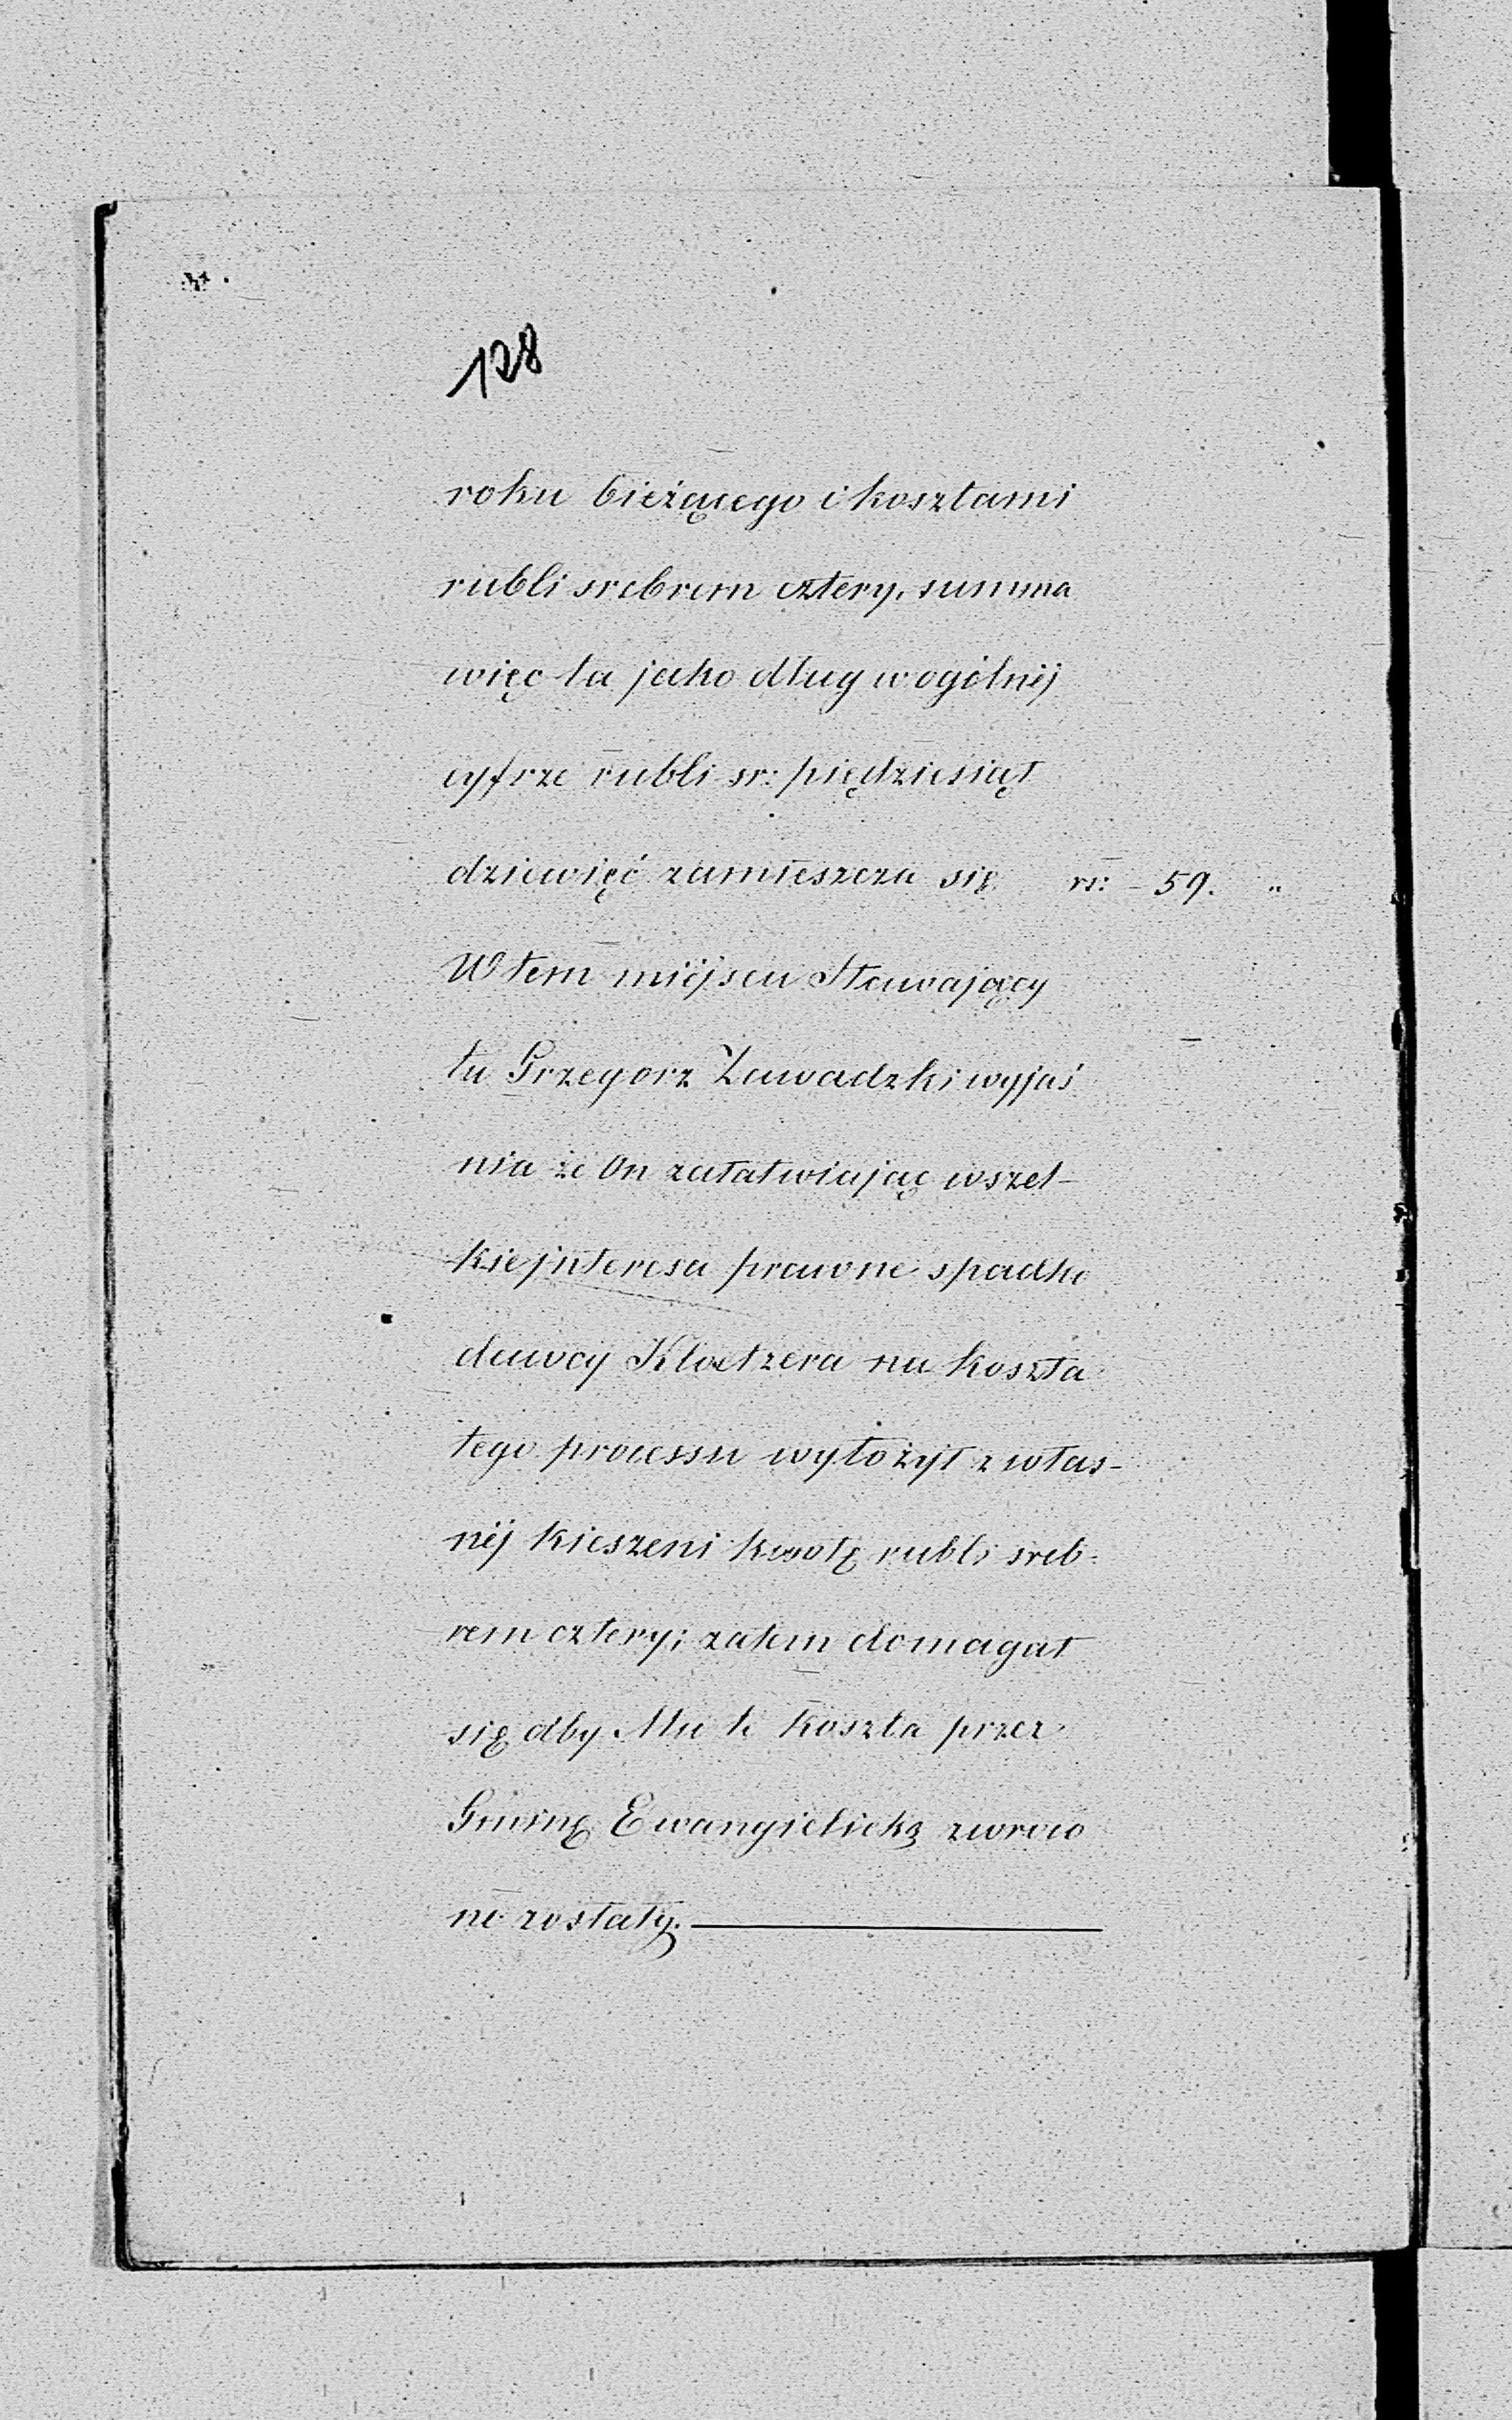 128
roku bieżącego i kosztami
rubli srebrem cztery, summa
więc ta jako dług w ogólnéj
cyfrze rubli sr: pięćdziesiąt
dziewięć zamieszcza się rs: – 59. "
W tem miéjscu Stawający
tu Grzegorz Zawadzki wyjaś
nia że On załatwiając wszel-
kie jnteresa prawne spadko
dawcy Kloetzera na koszta
tego processu wyłożył z włas-
néj kieszeni kwotę rubli sreb-
rem cztery; zatem domagał
się aby Mu te koszta przez
Gminę Ewangielicką zwróco
ne zostały.